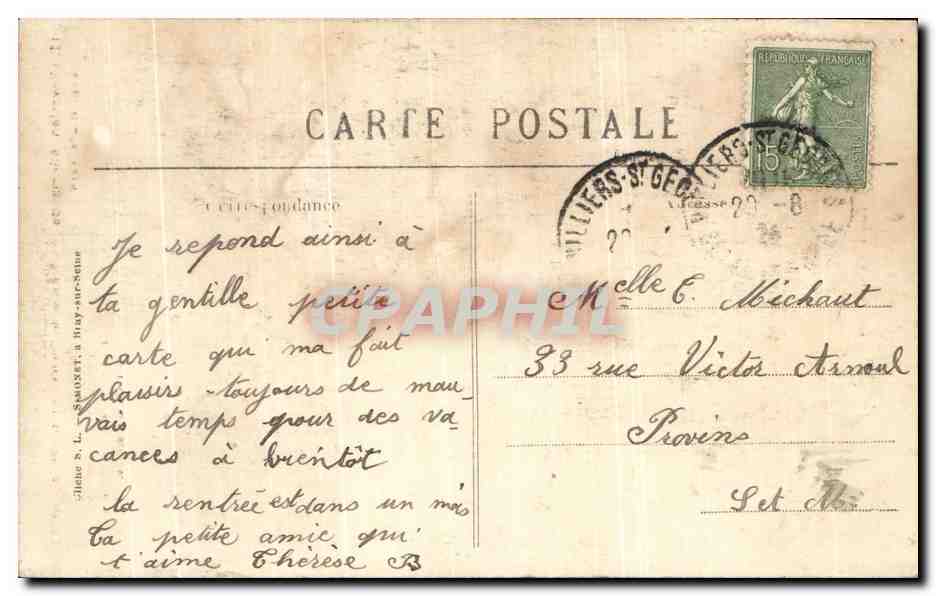 CARTE POSTALE
REPUBLIQUE FRANÇAISE
15
VILLIERS-ST GEO
VILLIERS-ST GEO
29 -8
26
Correspondance
Adresse
Je repond ainsi à
ta gentille petite
carte qui ma fait
plaisirs toujours de mau-
vais temps pour des va-
cances à bientôt
la rentrée est dans un mois
Ta petite amie qui
t'aime Thérèse B
Melle C. Michaut
33 rue Victor Arnoul
Provins
S et M
Cliché S. L. SIMONET, à Bray-sur-Seine
CPAPHIL